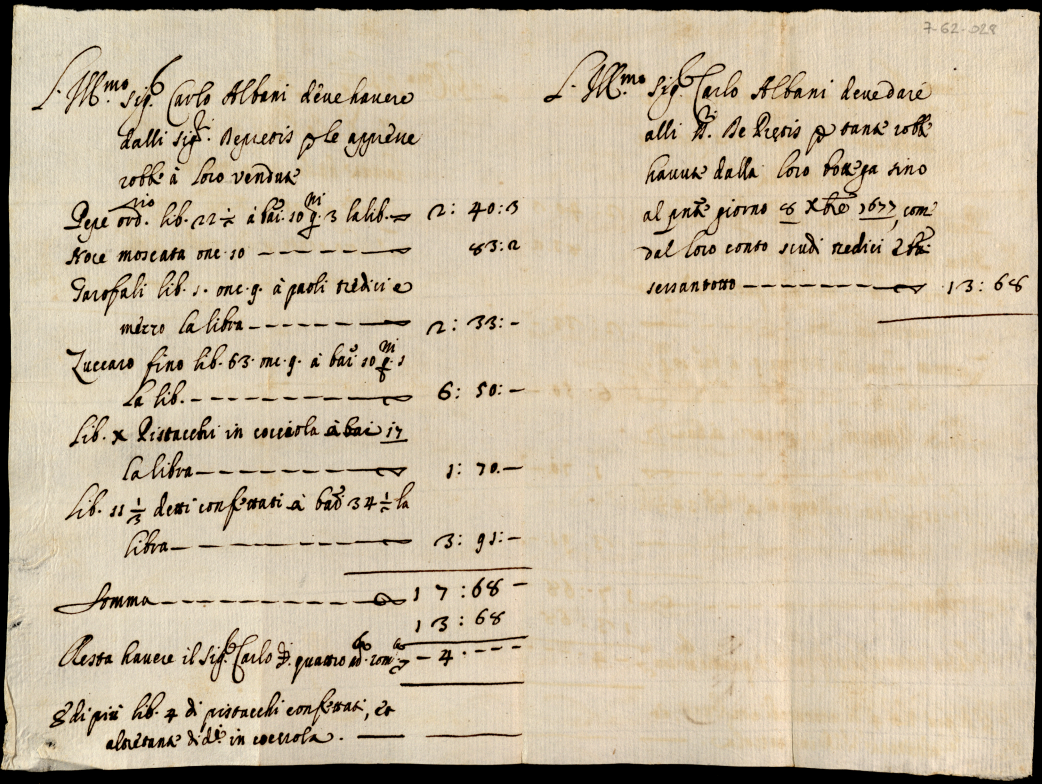 7-62-028
L'Ill.mo Sig.r Carlo Albani deve havere
dalli Sig.ri Depretis p le appresse
robbe à Loro vendute
Pepe ord.rio lib. 22 ½ à bai. 10 q.ni 3 la lib. 2: 40:3
Noce moscata onc. 10 83:2
Garofali lib. 1. onc. 9. à paoli tredici e
mezzo la libra 2: 33:-
Zuccaro fino lib. 63. onc. 9. à bai. 10 q.ni 1
La lib. 6: 50:-
Lib. x Pistacchi in cocciola à bai 17
la libra 1: 70.-
Lib. 11 1/3 detti confettati à bai 34 ½ la
libra 3: 91:-
Somma 17:68 -
13:68
Resta havere il Sig.r Carlo quattro - 4.---
E di più lib. 4 di pistacchi confettati, et
altretante di d.i in cocciola.
L'Ill.mo Sig.r Carlo Albani deve dare
alli SS.ri De Pretis p tante robbe
havute dalla loro bottega sino
al pnte giorno 8 Xbre 1677, come
dal loro conto scudi tredici e bai
sessantotto 13: 68